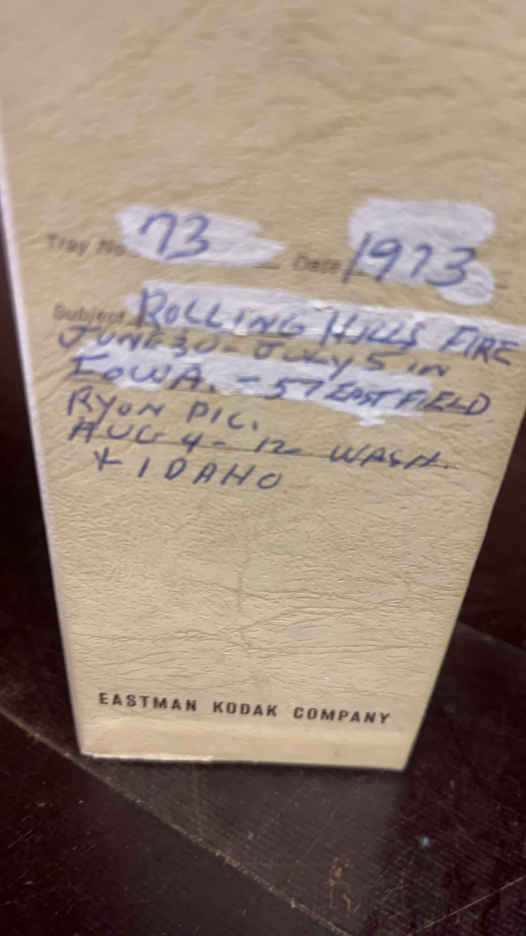 Tray No. 73 Date 1973
Subject ROLLING HILLS FIRE
JUNE 30 - JULY 5 IN
IOWA. - 57 EASTFIELD
RYON PIC.
AUG 4 - 12 WASH.
+ IDAHO
EASTMAN KODAK COMPANY